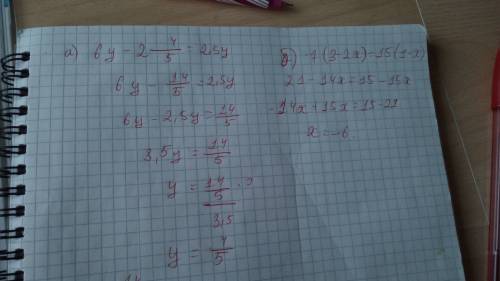 а) 6y - 2 4/5 = 2,5y
6y - 14/5 = 2,5y
6y - 2,5y = 14/5
3,5y = 14/5
y = 14/5 / 3,5
y = 4/5
б) 7(3-2x)=15(1-x)
21-14x=15-15x
-14x+15x=15-21
x=-6